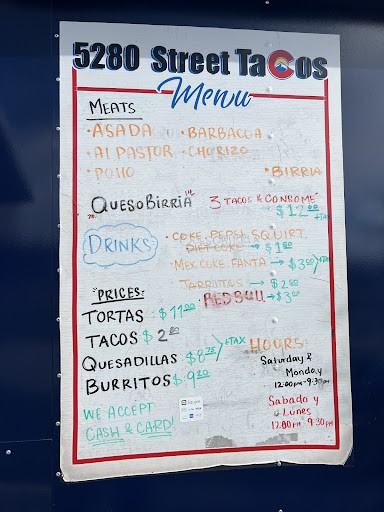 5280 Street Tacos
Menu
MEATS
• ASADA • BARBACOA
• Al PASTOR • CHORIZO
• POLLO • BIRRIA
QUESOBIRRIA 3 TACOS & CONSOME
$12.00 +TAX
DRINKS
• COKE, PEPSI, SQUIRT,
DIET COKE → $1.50
• MEX COKE, FANTA → $3.00 +TAX
JARRITOS → $2.50
• RED BULL → $3.00
PRICES:
TORTAS $11.00
TACOS $2.50
QUESADILLAS $8.75 +TAX
BURRITOS $9.50
HOURS:
Saturday &
Monday
12:00 PM - 9:30 PM
Sabado y
Lunes
12:00 PM - 9:30 PM
WE ACCEPT
CASH & CARD!